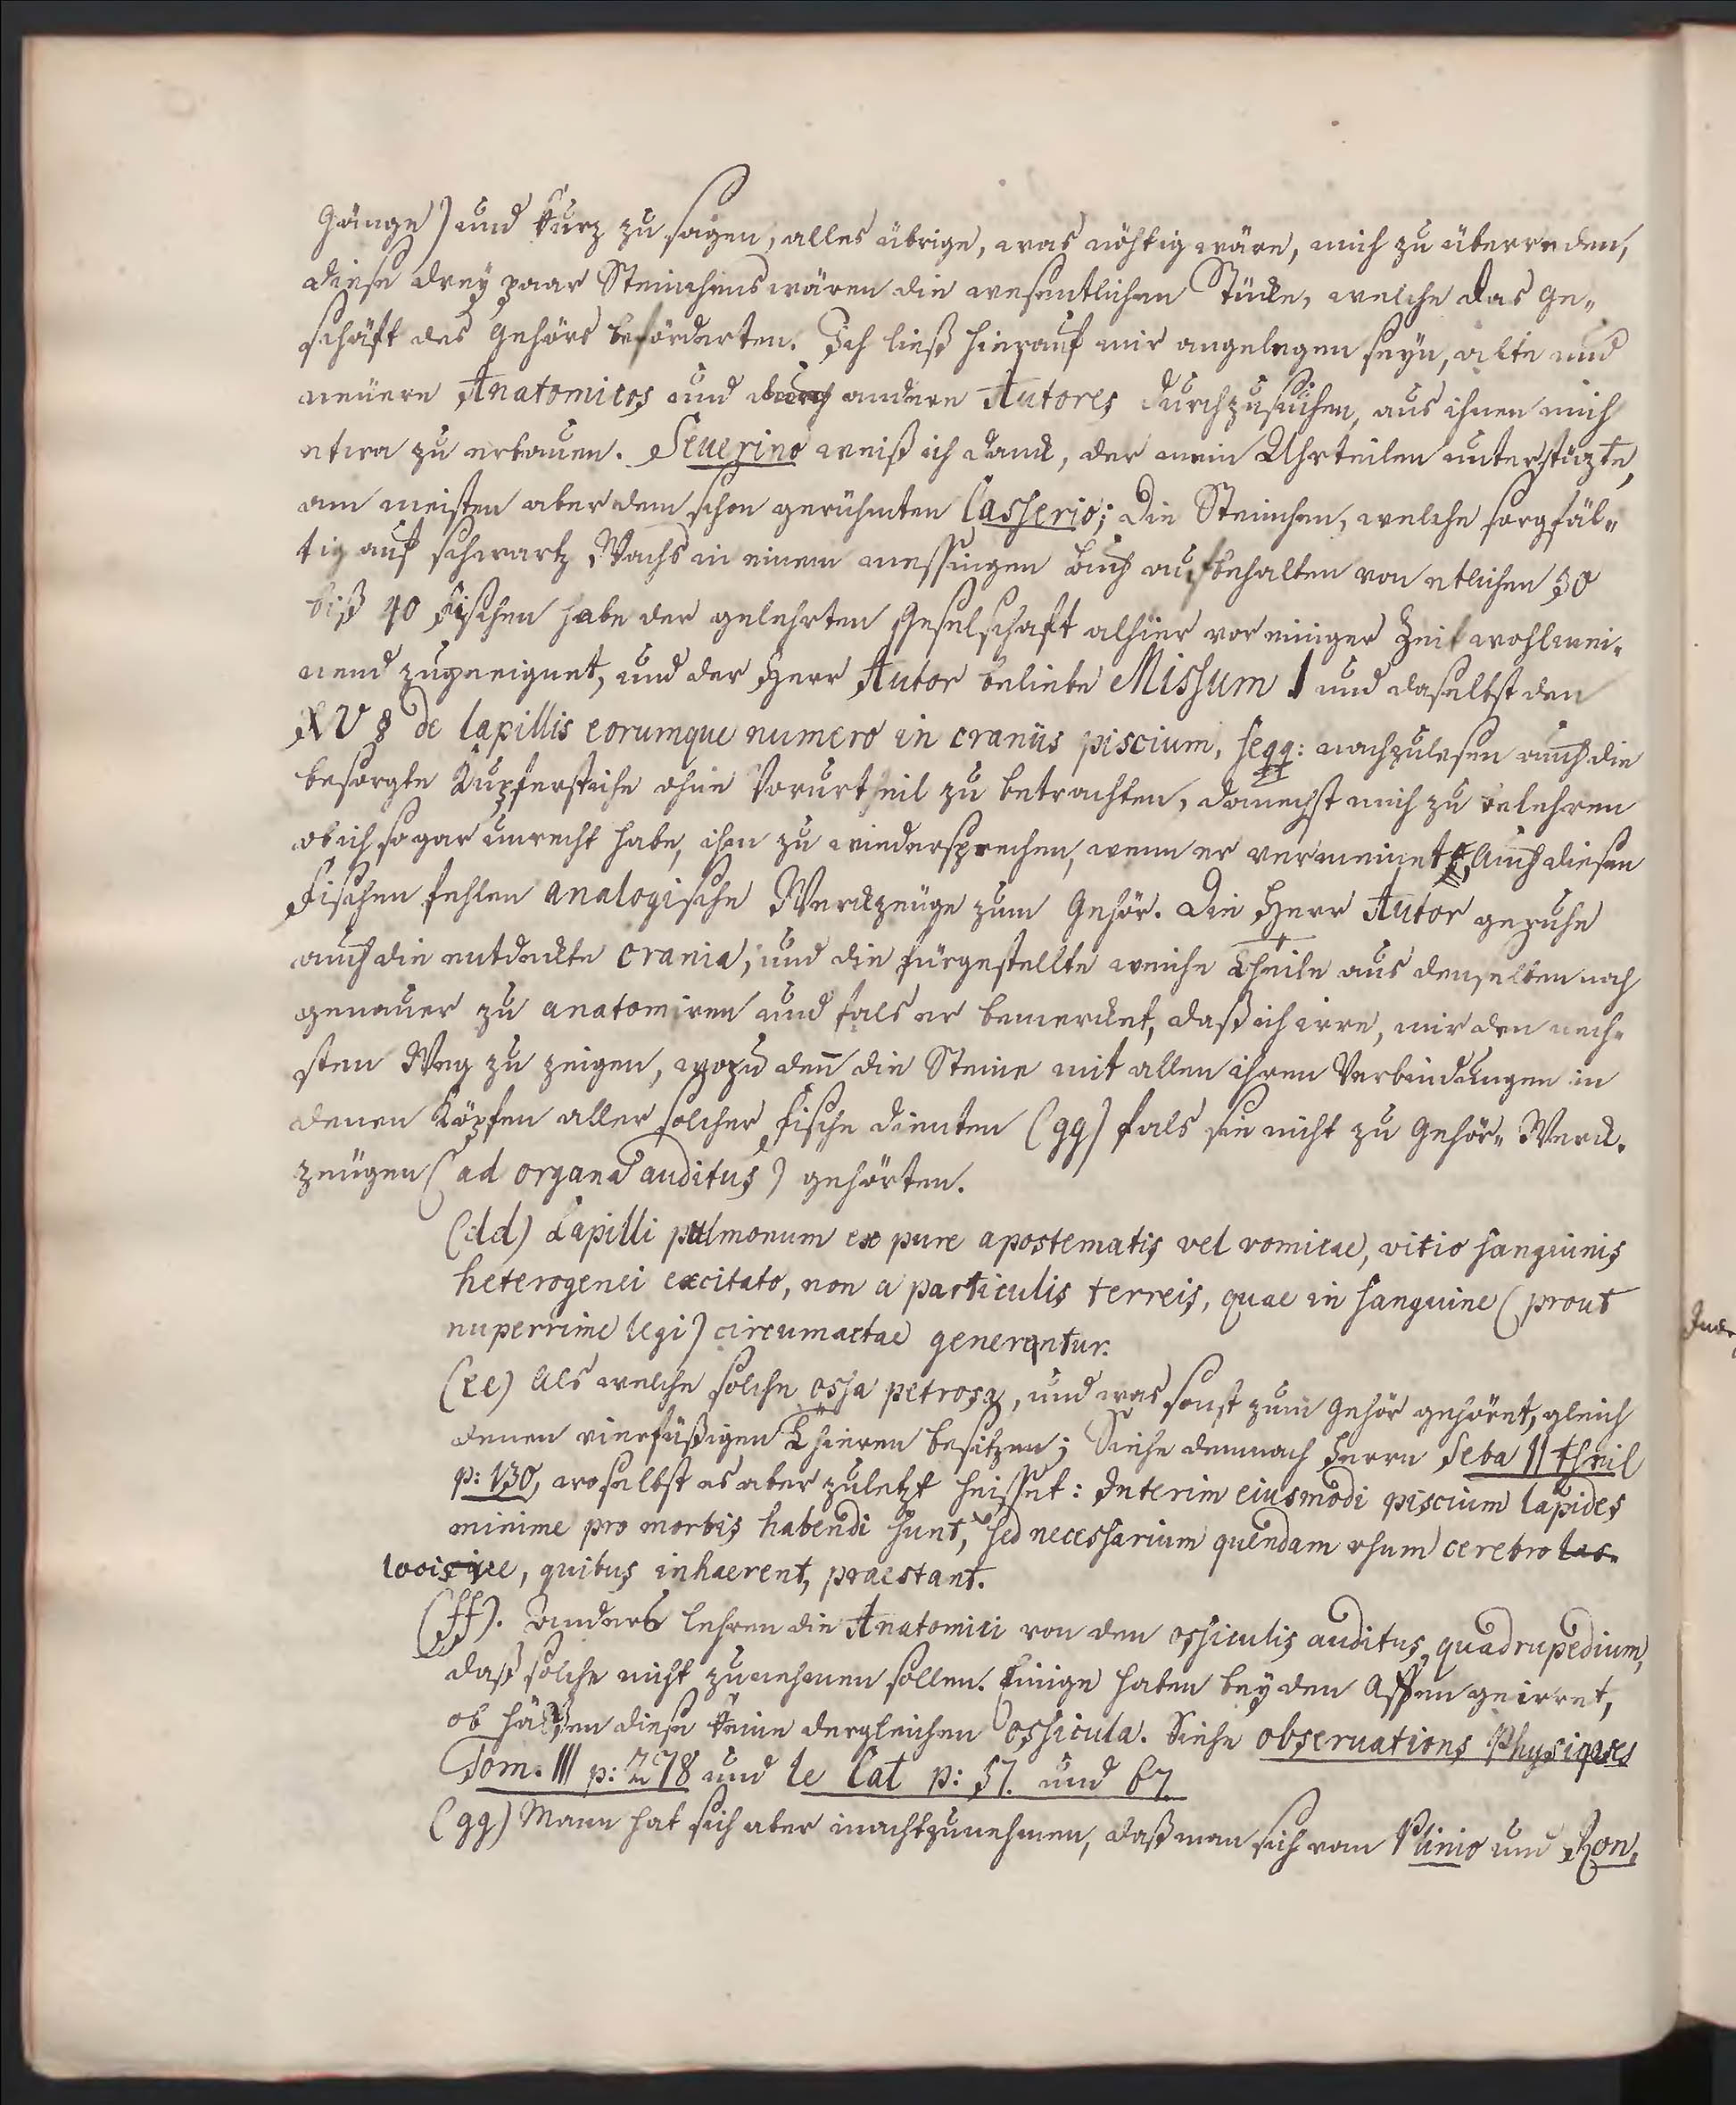 Gänge) und kurz zu sagen, alles übrige, was nöhtig wäre, mich zu überreden,
diese drey paar Steinchens wären die wesentlichen Stücke, welche das Ge-
schäft des Gehörs beförderten. Ich ließ hierauf mir angelegen seyn, alte und
neuere Anatomicos und andere Autores durchzusuchen, aus ihnen mich
etwa zu erbauen. Seuerino weiß ich danck, der mein Uhrteilen unterstüzte,
am meisten aber dem schon gerühmten Casserio; Die Steinchen, welche sorgfäl-
tig auf schwartz Wachs in einem messingen buch aufbehalten von etlichen 30
biß 40 Fischen habe der gelehrten Geselschaft alhier vor einiger Zeit wohlmei-
nend zugeeignet, und der Herr Autor beliebe Missum I und daselbst den
XV § de lapillis eorumque numero in craniis piscium, seqq: nachzulesen auch die
besorgte Kupferstiche ohne Vorurtheil zu betrachten, danechst mich zu belehren
ob ich sogar unrecht habe, ihm zu wiedersprechen, wenn er vermeinet, Auch diesen
Fischen fehlen analogische Werckzeuge zum Gehör. Die Herr Autor geruhe
auch die entdeckte crania, und die fürgestellte weiche Theile aus denselben noch
genauer zu anatomiren und fals er bemercket, daß ich irre, mir den nech-
sten Weg zu zeigen, wozu deñ die Steine mit allen ihren Verbindungen in
denen Köpfen aller solcher Fische dienten (gg) fals sie nicht zu Gehör- Werck-
zeugen (ad organa auditus) gehörten.
(dd) Lapilli pulmonum ex pure apostematis vel vomicae, vitio sanguinis
heterogenei excitato, non a particulis terreis, quae in sanguine (prout
nuperrime legi) circumactae generantur.
(ee) Als welche solche ossa petrosa, und was sonst zum Gehör gehöret, gleich
denen vierfüßigen Thieren besitzen; Siehe demnach Herrn Seba II theil
p: 130, woselbst es aber zuletzt heisset: Interim eiusmodi piscium lapides
minime pro morbis habendi sunt, sed necessarium quendam vsum cerebro
locisque, quibus inhaerent, praestant.
(ff). Anders lehren die Anatomici von den ossiculis auditus quadrupedium,
daß solche nicht zunehmen sollen. Einige haben bey den Affen geirret,
ob hätten diese keine dergleichen ossicula. Siehe obseruations Physiques
Tom. III p: 278 und le Cat p: 57. und 67.
(gg) Mann hat sich aber inachtzunehmen, daß man sich vom Plinio und Ron-